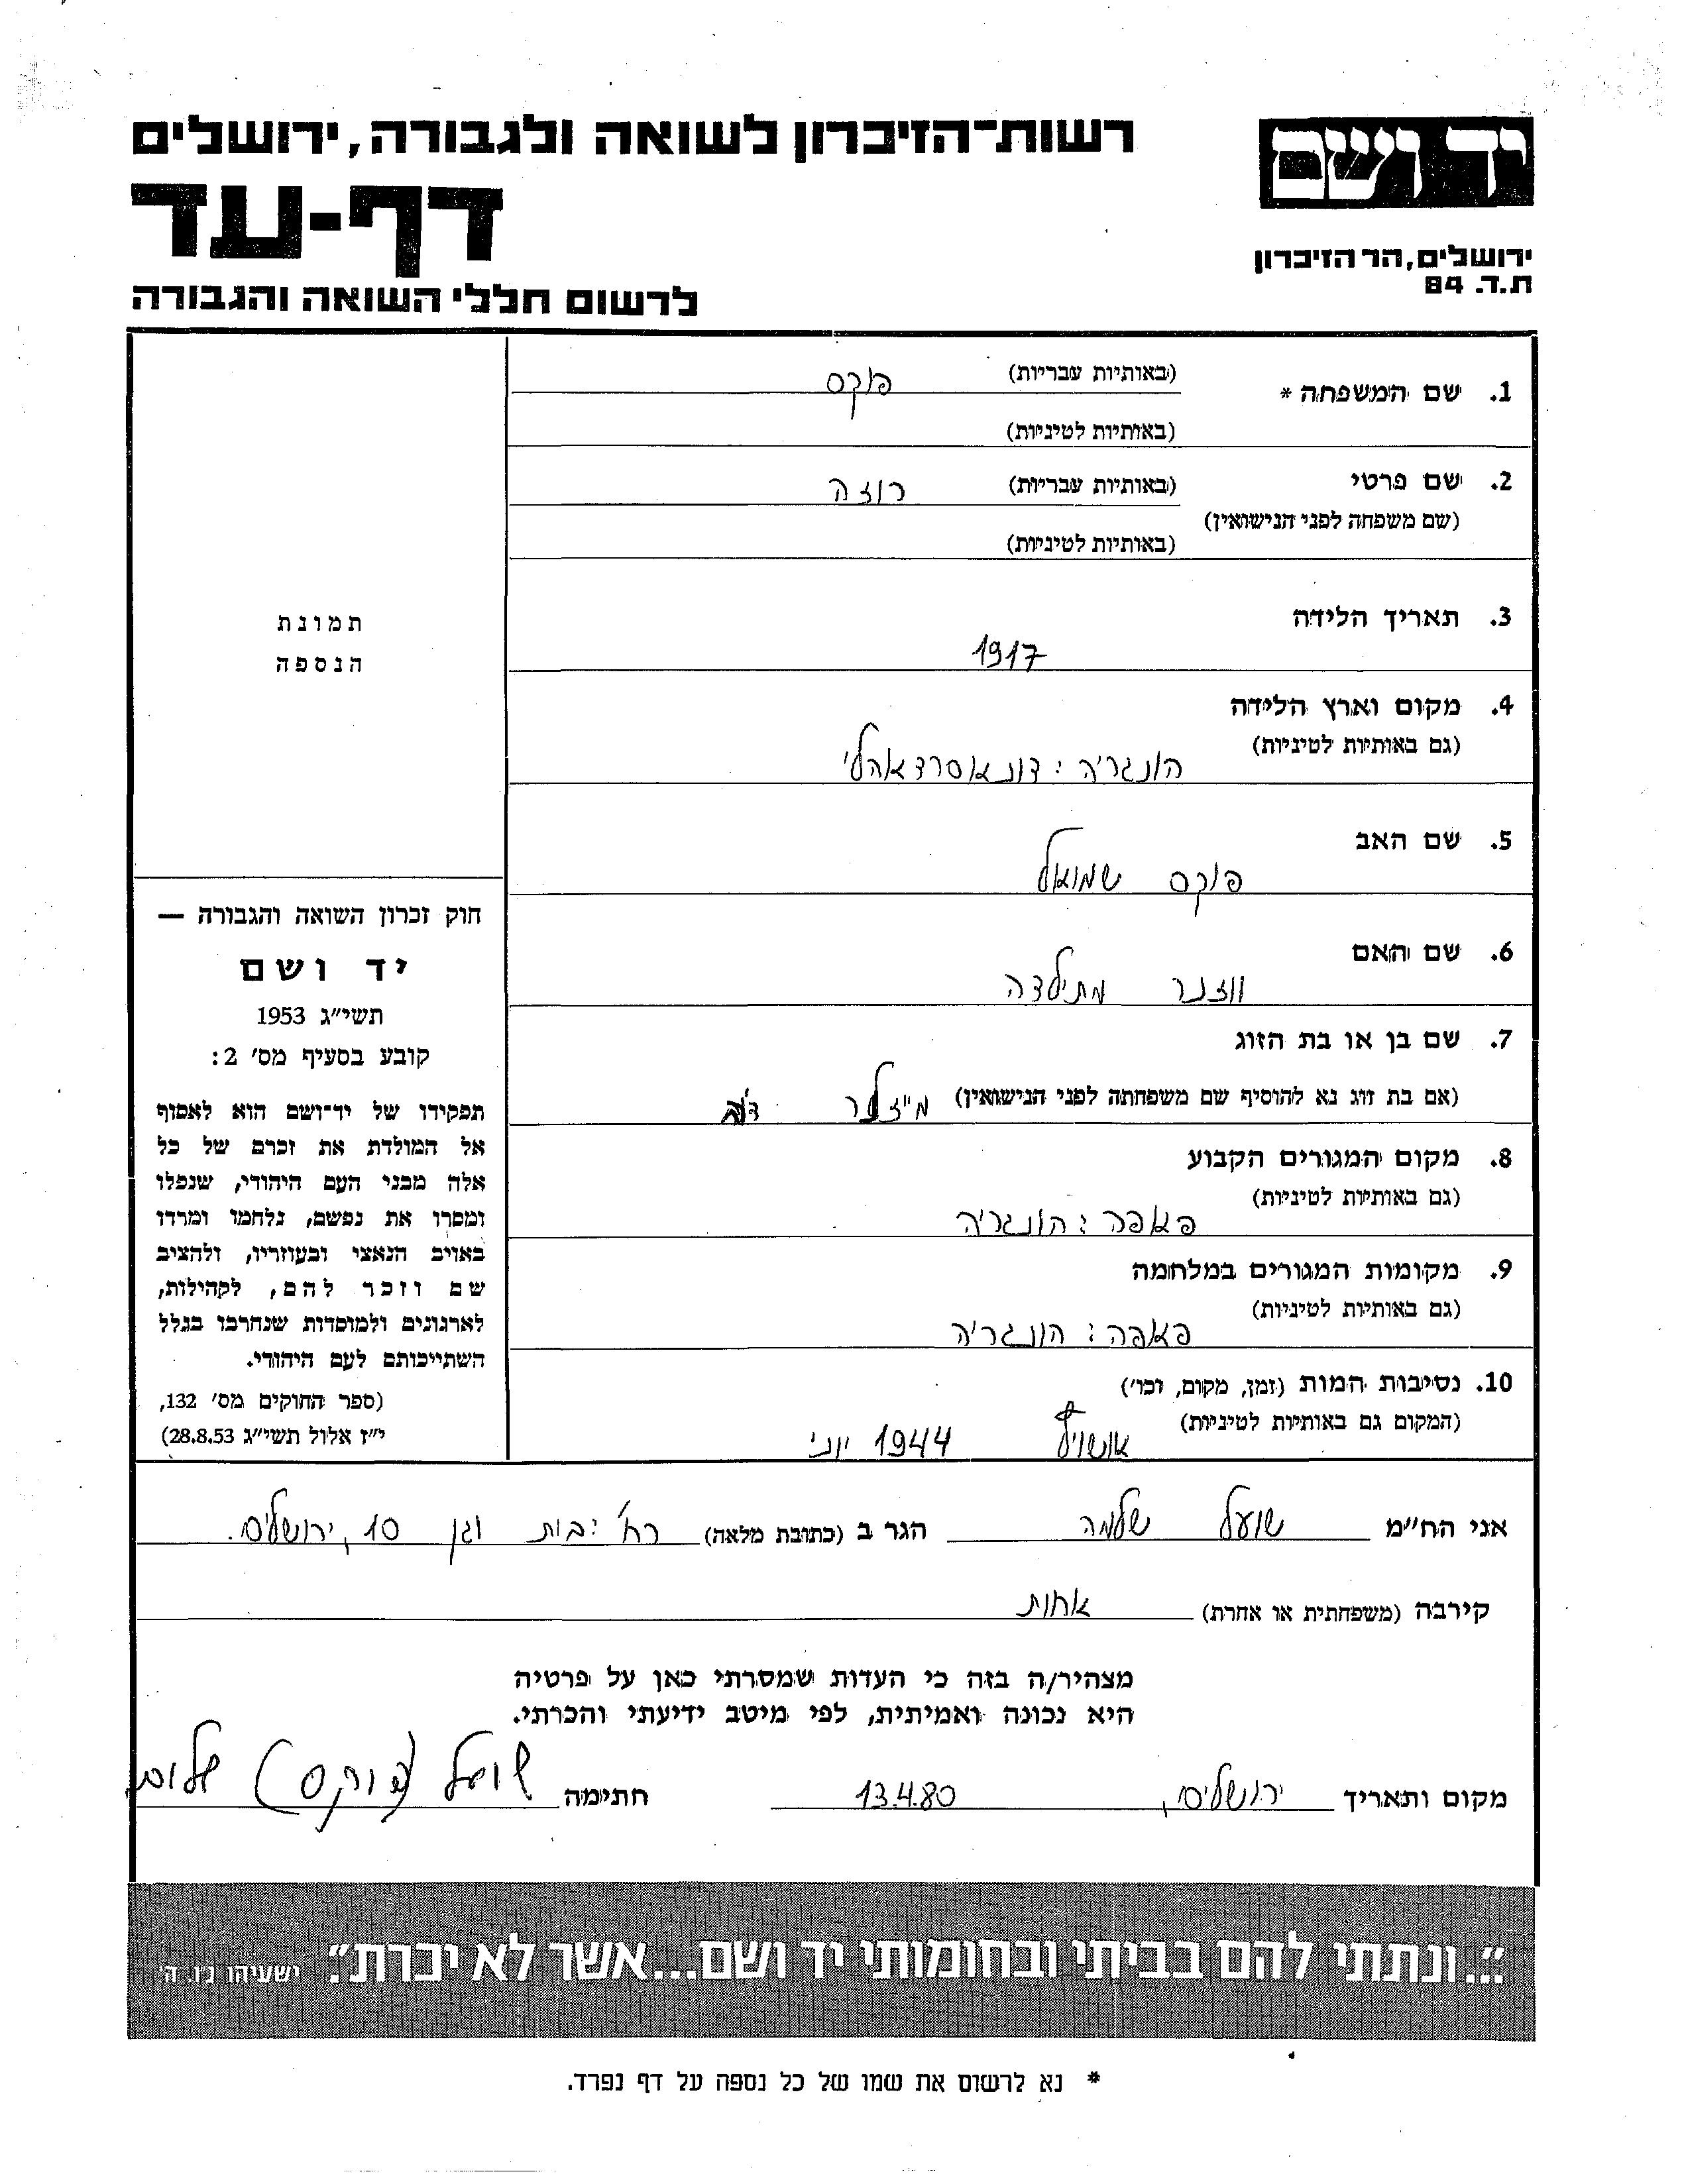 רשות־הזיכרון לשואה ולגבורה, ירושלים
יד ושם
דף-עד
ירושלים, הר הזיכרון
ת.ד. 84
לרשום חללי השואה והגבורה
1. שם המשפחה * (באותיות עבריות) פוקס
(באותיות לטיניות)
2. שם פרטי (באותיות עבריות) רוזה
(שם משפחה לפני הנישואין)
(באותיות לטיניות)
3. תאריך הלידה
1917
4. מקום וארץ הלידה
(גם באותיות לטיניות)
הונגריה: דונאסרדאהלי
5. שם האב
פוקס שמואל
6. שם האם
ווזנר מתילדה
7. שם בן או בת הזוג
(אם בת זוג נא להוסיף שם משפחתה לפני הנישואין)
8. מקום המגורים הקבוע
(גם באותיות לטיניות)
פאפה: הונגריה
9. מקומות המגורים במלחמה
(גם באותיות לטיניות)
פאפה: הונגריה
10. נסיבות המות (זמן, מקום, וכו')
(המקום גם באותיות לטיניות)
אושויץ 1944 יוני
תמונת
הנספה
חוק זכרון השואה והגבורה —
יד ושם
תשי"ג 1953
קובע בסעיף מס' 2:
תפקידו של יד־ושם הוא לאסוף
אל המולדת את זכרם של כל
אלה מבני העם היהודי, שנפלו
ומסרו את נפשם, נלחמו ומרדו
באויב הנאצי ובעוזריו, ולהציב
שם וזכר להם, לקהילות,
לארגונים ולמוסדות שנחרבו בגלל
השתייכותם לעם היהודי.
(ספר החוקים מס' 132,
י"ז אלול תשי"ג 28.8.53)
אני הח"מ שועל שלמה הגר ב (כתובת מלאה) רח' בית וגן 10, ירושלים.
קירבה (משפחתית או אחרת) אחות
מצהיר/ה בזה כי העדות שמסרתי כאן על פרטיה
היא נכונה ואמיתית, לפי מיטב ידיעתי והכרתי.
מקום ותאריך ירושלים, 13.4.80 חתימה שועל (פוקס)
"...ונתתי להם בביתי ובחומותי יד ושם...אשר לא יכרת". ישעיהו נ"ו, ה'
* נא לרשום את שמו של כל נספה על דף נפרד.